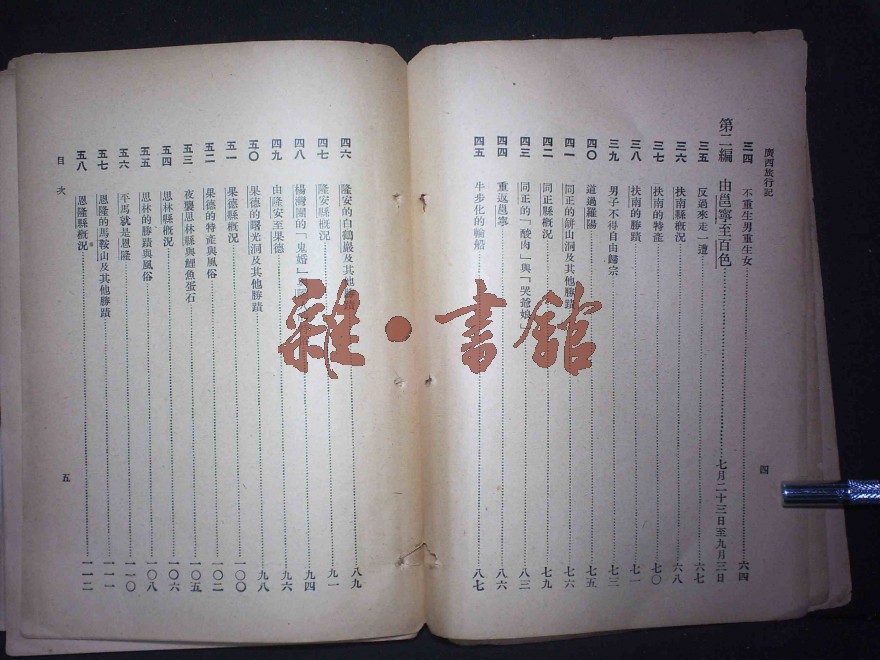 廣西旅行記
四
三四 不重生男重生女 六四
第二編 由邕寧至百色 七月二十三日至九月三日
三五 反過來走一遭 六七
三六 扶南縣概況 六八
三七 扶南的特產 七〇
三八 扶南的勝蹟 七一
三九 男子不得自由歸宗 七三
四〇 道過羅陽 七五
四一 同正的 山洞及其他勝蹟 七六
四二 同正縣概況 七九
四三 同正的「酸肉」與「哭爺娘」 八三
四四 重返邕寧 八六
四五 牛步化的輪船 八七
四六 隆安的白鶴巖及其他勝蹟 八九
四七 隆安縣概況 九一
四八 楊灣團的「鬼婚」與 九四
四九 由隆安至果德 九六
五〇 果德的曙光洞及其他勝蹟 九八
五一 果德縣概況 一〇〇
五二 果德的特產與風俗 一〇二
五三 夜襲思林縣與鯉魚蛋石 一〇五
五四 思林縣概況 一〇六
五五 思林的勝蹟與風俗 一〇八
五六 平馬就是恩隆 一一〇
五七 恩隆的馬鞍山及其他勝蹟 一一一
五八 恩隆縣概況 一一二
目次
五
雜·書館